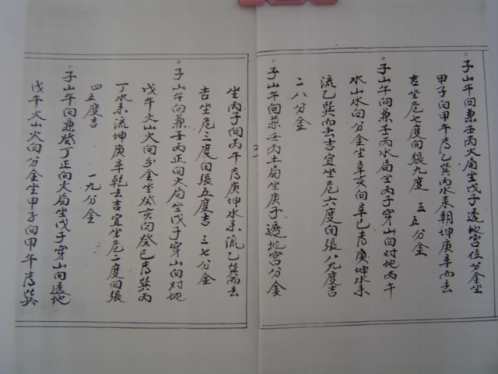 子山午向兼壬丙火局坐戊子透地宮位分金坐
甲子向甲午为乙巽丙水来朝坤庚辛而去
吉坐危七度向張九度 三五分金
子山午向兼壬丙水局坐丙子穿山向对地丙午
水山水向分金坐辛亥向辛巳为庚坤水来
流乙巽而去吉宜坐危六度向張八九度吉
二八分金
子山午向兼壬丙土局坐庚子透地宮分金
坐丙子向丙午为庚坤水来流乙巽而去
吉坐危三度向張五度吉 三七分金
子山午向兼壬丙正向火局坐戊子穿山向对地
戊午火山火向分金坐癸亥向癸巳为巽丙
丁水来流坤庚辛乾去吉宜坐危二度向張
四五度吉 一九分金
子山午向兼癸丁正向火局坐戊子穿山向透地
戊午火山火向分金坐甲子向甲午为巽